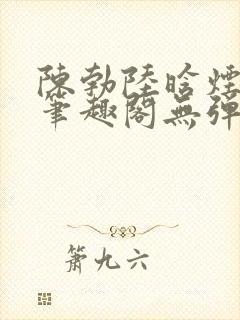 陳勃陸晗煙
筆趣閣無彈
蕭九六